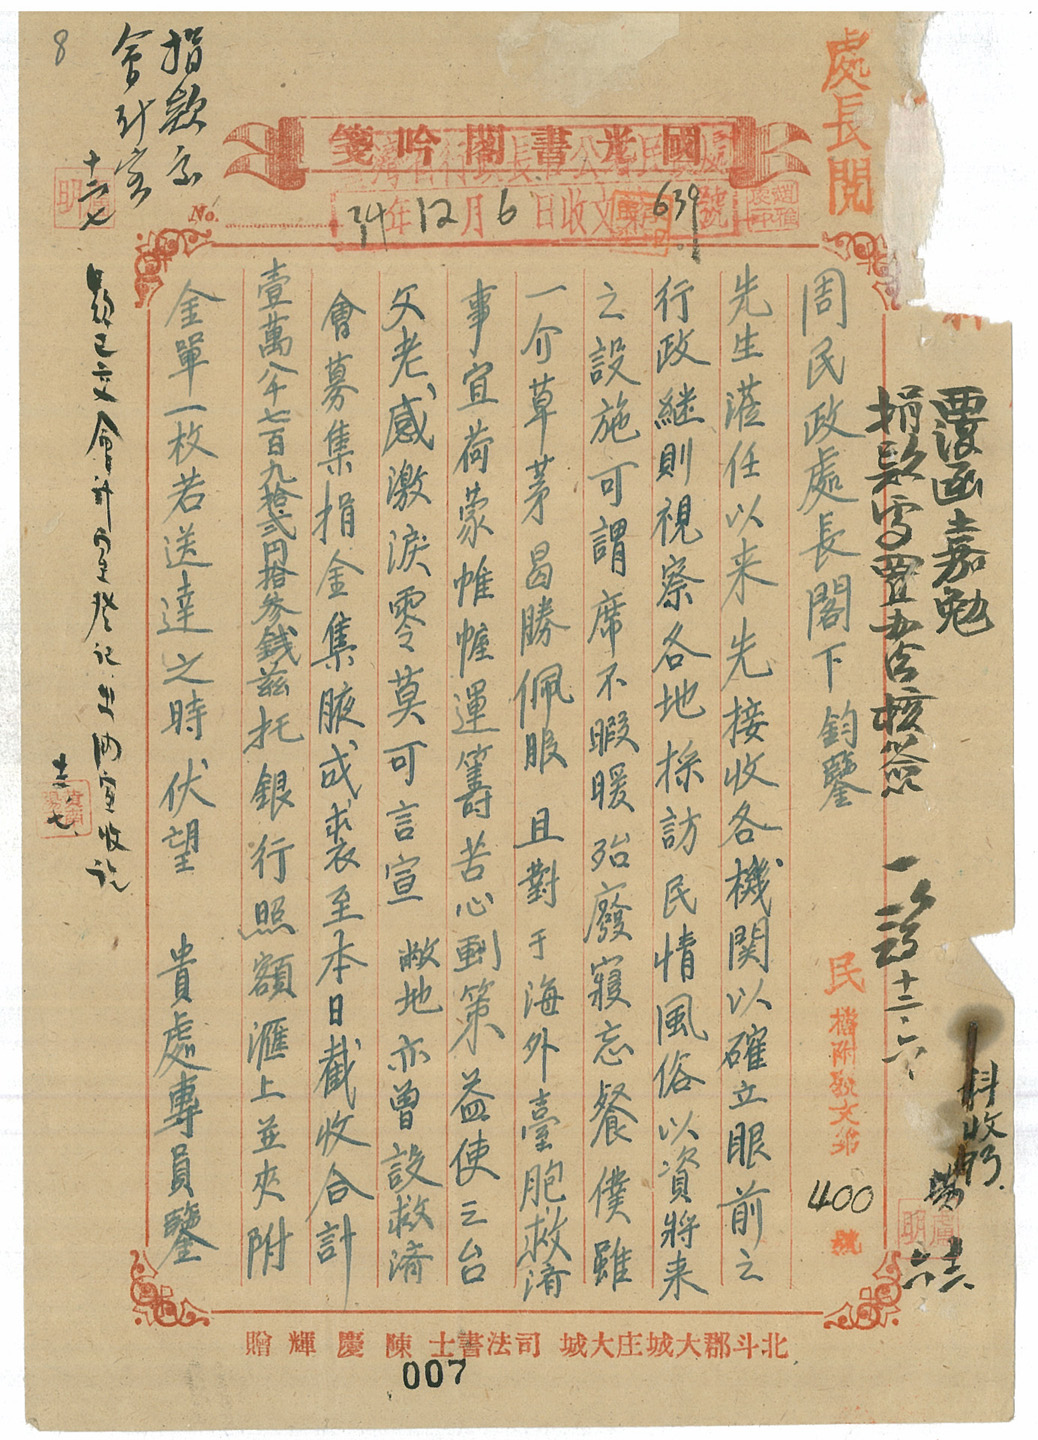 處長閱
國光書閣吟箋
No.
34年12月6日收文
639號
周民政處長閣下鈞鑒
先生蒞任以来先接收各機関以確立眼前之
行政継則視察各地採訪民情風俗以資將来
之設施可謂席不暇暖殆廢寢忘餐僕雖
一介草茅曷勝佩服 且對于海外臺胞救済
事宜荷蒙帷幄運籌苦心劃策益使三台
父老感激淚零莫可言宣 敝地亦曾設救済
會募集捐金集腋成裘至本日截收合計
壹萬八千七百九拾弐円拾参銭茲托銀行照額滙上並夾附
金單一枚若送達之時伏望 貴處專員鑒
覆函嘉勉
十二、六
民
檔附歌文第
400
號
科收
捐款交
會計室
十二、七
8
款已交會計室登記出納室收訖
十二、七
北斗郡大城庄大城 司法書士 陳慶輝贈
007